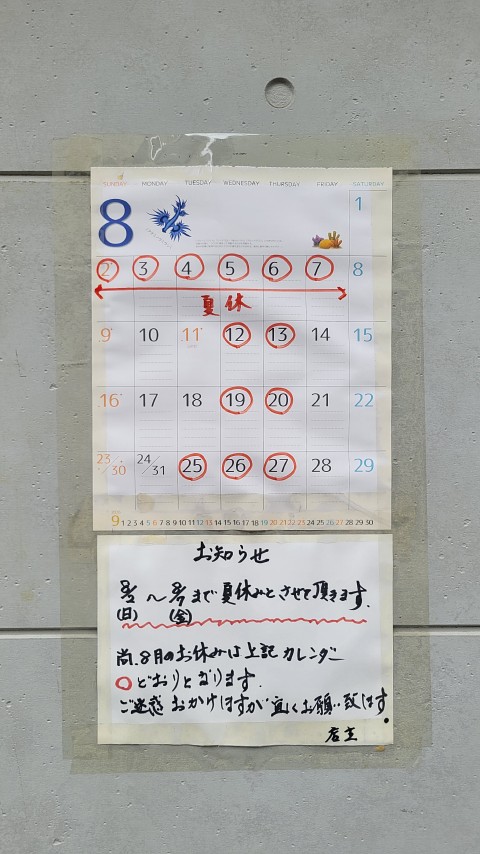 SUNDAY MONDAY TUESDAY WEDNESDAY THURSDAY FRIDAY SATURDAY
8 1
2 3 4 5 6 7 8
夏休
9 10 11 12 13 14 15
16 17 18 19 20 21 22
23/30 24/31 25 26 27 28 29
9 1 2 3 4 5 6 7 8 9 10 11 12 13 14 15 16 17 18 19 20 21 22 23 24 25 26 27 28 29 30
お知らせ
8/2 〜 8/7 まで夏休みとさせて頂きます.
(日) (金)
尚.8月のお休みは上記カレンダー
○どおりとなります.
ご迷惑おかけしますが宜しくお願い致します.
店主